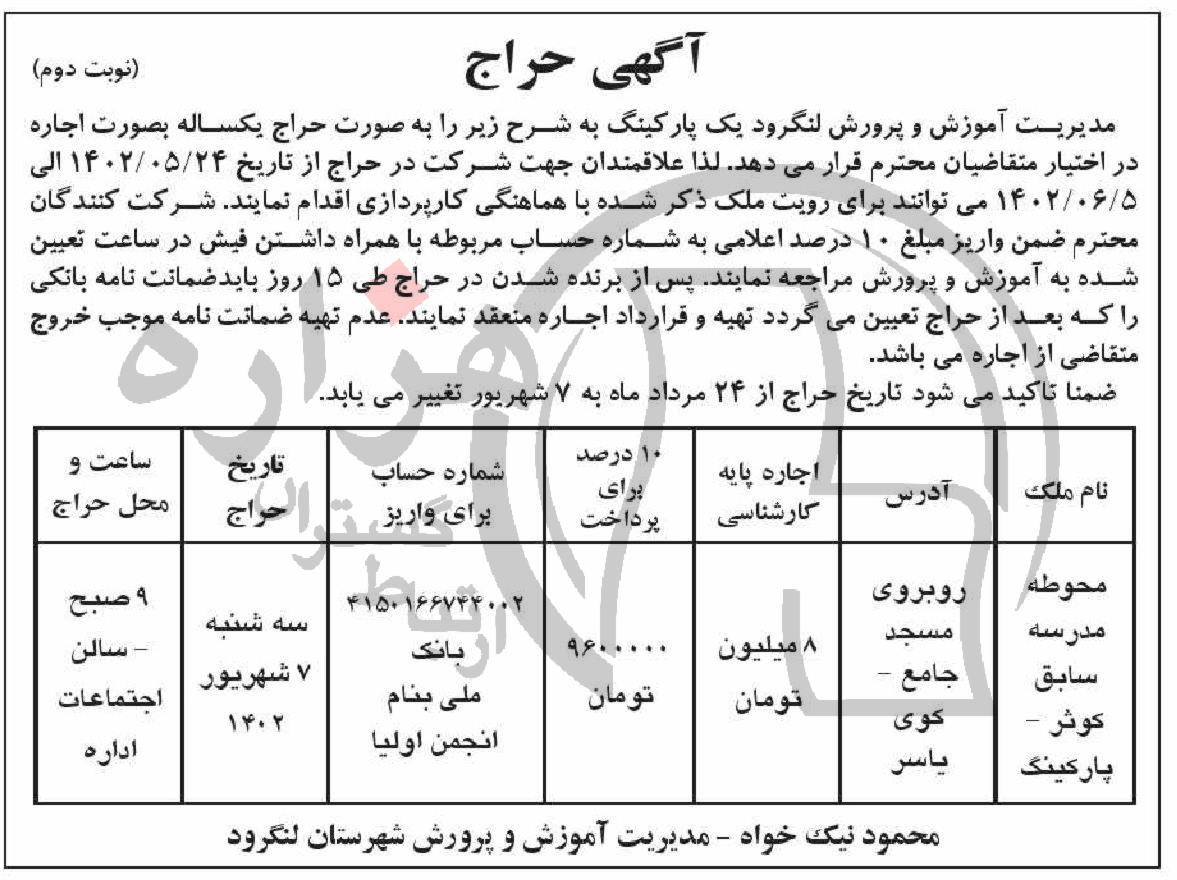 آگهی حراج
(نوبت دوم)
مدیریت آموزش و پرورش لنگرود یک پارکینگ به شرح زیر را به صورت حراج یکساله بصورت اجاره
در اختیار متقاضیان محترم قرار می دهد. لذا علاقمندان جهت شرکت در حراج از تاریخ ۱۴۰۲/۰۵/۲۴ الی
۱۴۰۲/۰۶/۵ می توانند برای رویت ملک ذکر شده با هماهنگی کارپردازی اقدام نمایند. شرکت کنندگان
محترم ضمن واریز مبلغ ۱۰ درصد اعلامی به شماره حساب مربوطه با همراه داشتن فیش در ساعت تعیین
شده به آموزش و پرورش مراجعه نمایند. پس از برنده شدن در حراج طی ۱۵ روز بایدضمانت نامه بانکی
را که بعد از حراج تعیین می گردد تهیه و قرارداد اجاره منعقد نمایند. عدم تهیه ضمانت نامه موجب خروج
متقاضی از اجاره می باشد.
ضمنا تاکید می شود تاریخ حراج از ۲۴ مرداد ماه به ۷ شهریور تغییر می یابد.
نام ملک
آدرس
اجاره پایه
کارشناسی
۱۰ درصد
برای
پرداخت
شماره حساب
برای واریز
تاریخ
حراج
ساعت و
محل حراج
محوطه
مدرسه
سابق
کوثر –
پارکینگ
روبروی
مسجد
جامع –
کوی
یاسر
۸ میلیون
تومان
۹۶۰۰۰۰۰
تومان
۴۱۵۰۱۶۶۷۴۴۰۰۲
بانک
ملی بنام
انجمن اولیا
سه شنبه
۷ شهریور
۱۴۰۲
۹ صبح
– سالن
اجتماعات
اداره
محمود نیک خواه – مدیریت آموزش و پرورش شهرستان لنگرود
هزاره
ارتباط
گستران